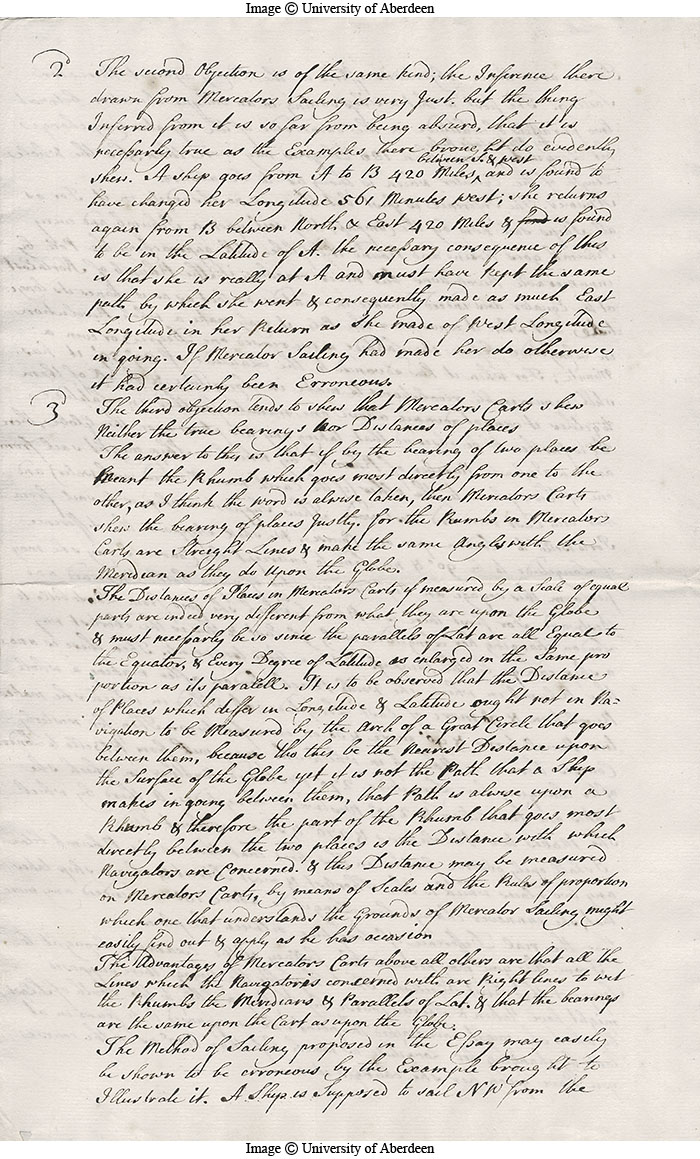 Image © University of Aberdeen
2° The second Objection is of the same kind; the Inference there
drawn from Mercators Sailing is very Just. but the thing
Inferred from it is so far from being absurd, that it is
necessarly true as the Examples there brought do evidently
between So & west
shew. A ship goes from A to B 420 Miles, and is found to
have changed her Longitude 561 Minutes west; she returns
again from B between North & East 420 Miles & found is found
to be in the Latitude of A. the necessary consequence of this
is that she is really at A and must have kept the same
path by which she went & consequently made as much East
Longitude in her Return as She made of West Longitude
in going. If Mercator Sailing had made her do otherwise
it had certainly been Erroneous.
3 The third objection tends to shew that Mercators Carts shew
Neither the true bearings nor Distances of places
The answer to this is that if by the bearing of two places be
Meant the Rhumb which goes most directly from one to the
other, as I think the word is alwise taken, then Mercators Carts
shew the bearing of places Justly. for the Rumbs in Mercators
Carts are Streight Lines & make the same Angles with the
Meridian as they do upon the Globe.
The Distances of Places in Mercators Carts if measured by a Scale of equal
parts are indeed very different from what they are upon the Globe
& must necessarly be so since the parallels of Lat are all Equal to
the Equator, & Every Degree of Latitude is enlarged in the Same pro
portion as its paralell. It is to be observed that the Distance
of Places which differ in Longitude & Latitude ought not in Na=
vigation to be Measured by the Arch of a Great Circle that goes
between them, because tho this be the Nearest Distance upon
the Surface of the Globe yet it is not the Path that a Ship
makes in going between them, that Path is alwise upon a
Rhumb & therefore the part of the Rhumb that goes most
directly between the two places is the Distance with which
Navigators are Concerned. & this Distance may be measured
on Mercators Carts, by means of Scales and the Rules of proportion
which one that understands the Grounds of Mercator Sailing might
easily find out & apply as he has occasion
The Advantages of Mercators Carts above all others are that all the
Lines which the Navigator is concerned with are Right lines to wit
the Rhumbs the Meridians & Parallels of Lat. & that the bearings
are the same upon the Cart as upon the Globe.
The Method of Sailing proposed in the Essay may easily
be shown to be erroneous by the Example brought to
Illustrate it. A Ship is Supposed to sail NW from the
Image © University of Aberdeen